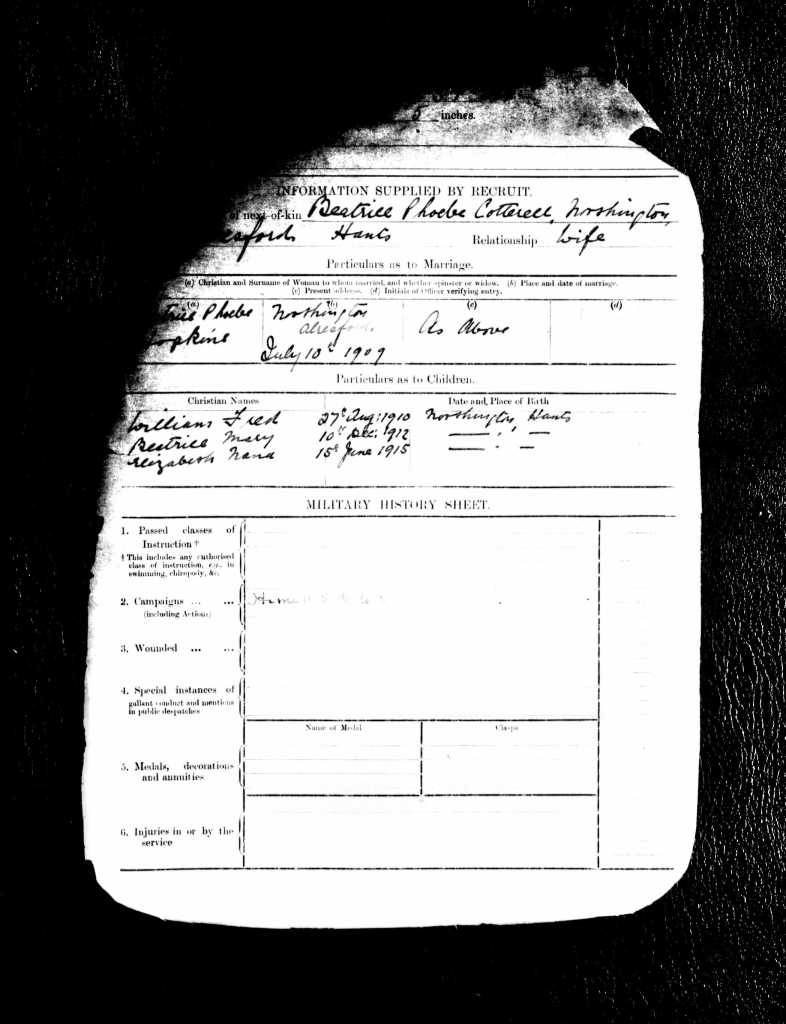 5 inches.
INFORMATION SUPPLIED BY RECRUIT.
of next-of-kin Beatrice Phoebe Cotterell, Northington,
Hants Relationship Wife
Particulars as to Marriage.
(a) Christian and Surname of Woman to whom married, and whether spinster or widow. (b) Place and date of marriage.
(c) Present address. (d) Initials of Officer verifying entry.
(a) (b) (c) (d)
Phoebe Northington As Above
Alresford.
July 10th 1909
Particulars as to Children.
Christian Names Date and Place of Birth
William Fred 27th Aug: 1910 Northington Hants
Beatrice Mary 10th Dec: 1912 — " —
Elizabeth 15th June 1915 — " —
MILITARY HISTORY SHEET.
1. Passed classes of
Instruction †
† This includes any authorised
class of instruction, e.g., in
swimming, chiropody, &c.
2. Campaigns ... ... Home
(including Actions)
3. Wounded ... ...
4. Special instances of
gallant conduct and mentions
in public despatches
Name of Medal Clasps
5. Medals, decorations
and annuities
6. Injuries in or by the
service